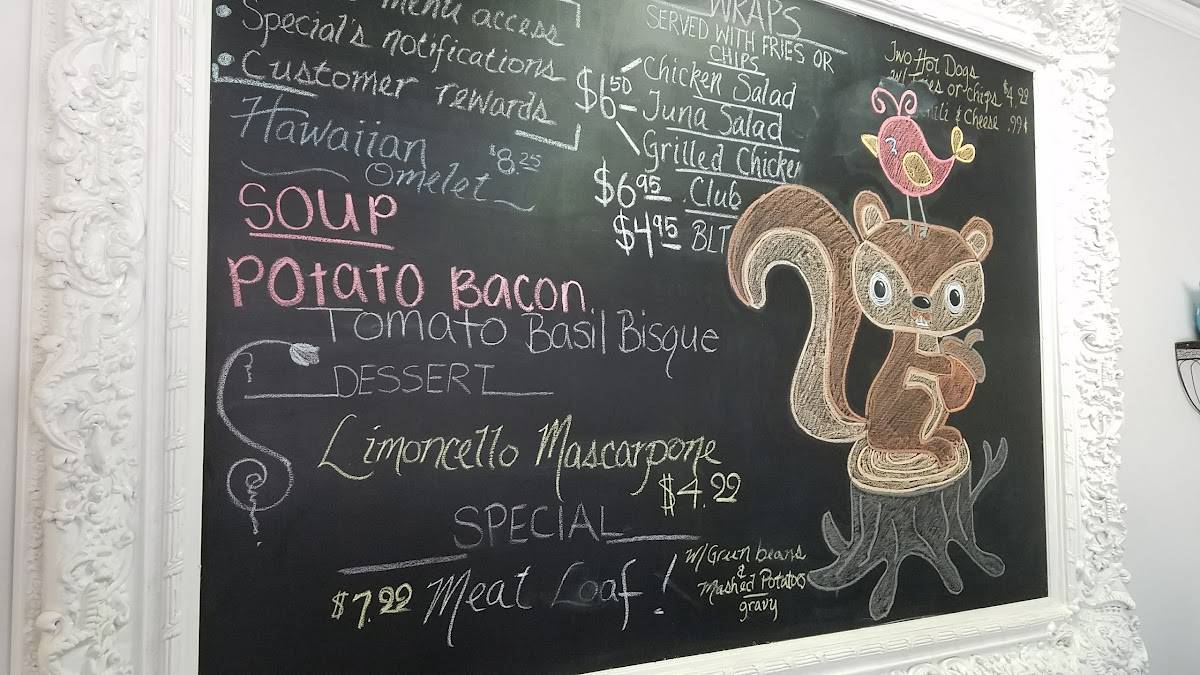 menu access
Special's notifications
Customer rewards
Hawaiian
Omelet
$8.25
SOUP
Potato Bacon
Tomato Basil Bisque
DESSERT
Limoncello Mascarpone
$4.99
SPECIAL
$7.99 Meat Loaf!
w/Green beans
&
Mashed Potatoes
gravy
WRAPS
SERVED WITH FRIES OR
CHIPS
$6.50
Chicken Salad
Tuna Salad
Grilled Chicken
$6.95 Club
$4.95 BLT
Two Hot Dogs
w/ or chips $4.99
& Cheese .99¢